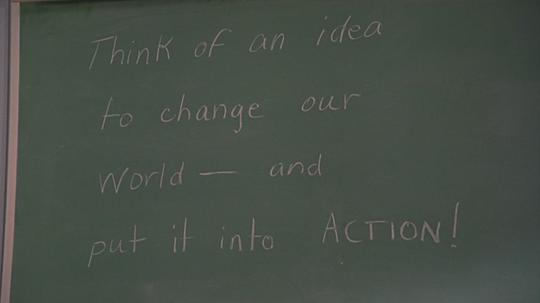 Think of an idea
to change our
world — and
put it into ACTION!